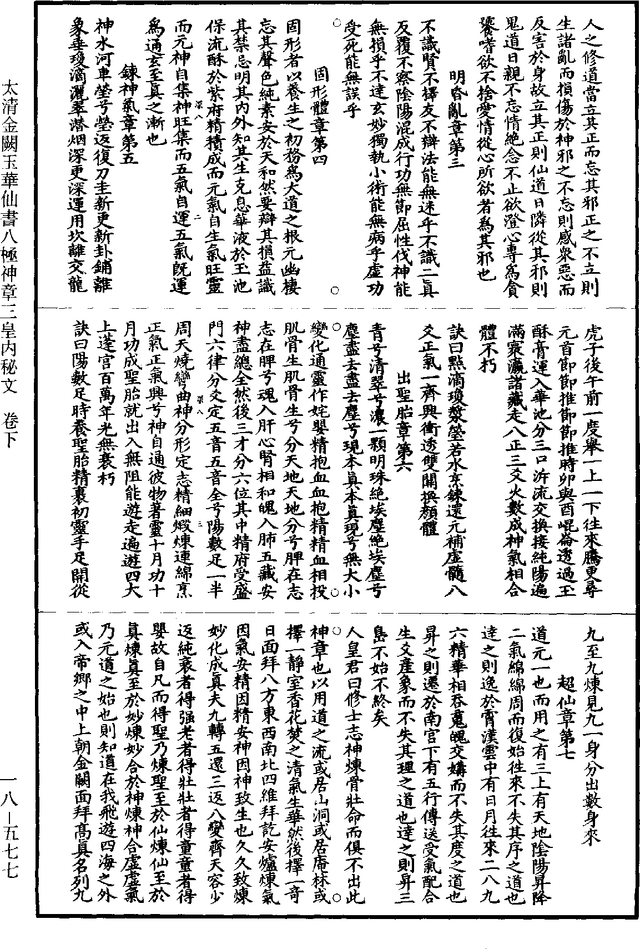 太清金闕玉華仙書八極神章三皇內秘文 卷下
一八—五七七
人之修道當立其正而忘其邪正之不立則
生諸亂而損傷於神邪之不忘則感衆惡而
反害於身故立其正則仙道日隣從其邪則
鬼道日親不忘情絶念不止欲澄心專爲貪
饕嗜欲不捨愛情從心所欲者爲其邪也
明昏亂章第三
不識賢不擇友不辯法能無迷乎不識二真
反覆不察陰陽混成行功無節屈性伐神能
無損乎不達玄妙獨執小術能無病乎虛功
受死能無誤乎
固形體章第四
固形者以養生之初務爲大道之根元幽棲
忘其聲色純素安於天和然要辯其損益識
其禁忌明其內外知其生克息華液於玉池
保流酥於紫府精積成而元氣自生氣旺靈
而元神自集神旺集而五氣自運五氣旣運
爲通玄至真之漸也
鍊神氣章第五
神水河車瑩兮瑩返復刀圭新更新卦鋪離
象垂瓊滴灑翠潛烟深更深運用坎離交龍
虎子後午前一度舉一上一下往來騰更尋
元首節節推節節推時卯與酉崐崙透過玉
酥膏運入華池分三口泝流交換接純陽遍
滿寰瀛諸藏走八正三爻火數成神氣相合
體不朽
訣曰點滴瓊漿瑩若水烹鍊還元補虛髓八
爻正氣一齊興衝透雙關換顏體
出聖胎章第六
青兮清翠兮濃一顆明珠絶埃塵絶埃塵兮
塵盡去盡去塵兮現本真本真現兮無大小
變化通靈作姹嬰精抱血血抱精精血相投
肌骨生肌骨生兮分天地天地分兮脾在志
志在脾兮魂入肝心腎相和魄入肺五藏安
神盡總全然後三才分六位其中精府受盛
門六律分爻定五音五音全兮陽數足一半
周天燒彎曲神分形定志精細煅煉連綿烹
正氣正氣興兮神自通彼物著靈十月功十
月功成聖胎就出入無阻能遊走遍遊四大
上蓬宮百萬年光無衰朽
訣曰陽數足時養聖胎精裹初靈手足開從
九至九煉見九一身分出數身來
超仙章第七
道元一也而用之有三上有天地陰陽昇降
二氣綿綿周而復始往來不失其序之道也
達之則逸於霄漢雲中有日月往來二八九
六精華相吞䰟魄交媾而不失其度之道也
昇之則遷於南宮下有五行傳送受氣配合
生爻産象而不失其理之道也達之則昇三
島不始不終矣
人皇君曰修士志神煉骨壯命而俱不出此
神章也以用道之流或居山洞或居庵林或
擇一靜室香花焚之清氣生華然後擇一奇
日面拜八方東西南北四維拜訖安爐煉氣
因氣安精因精安神因神致生也久久致煉
妙化成真夫九轉五還三返八變齊天容少
返純衰者得强老者得壯壯者得童童者得
嬰故自凡而得聖乃煉聖至於仙煉仙至於
真煉真至於妙煉妙合於神煉神合虛虛氣
乃元道之始也則知道在我飛遊四海之外
或入帝鄉之中上朝金闕面拜髙真名列九